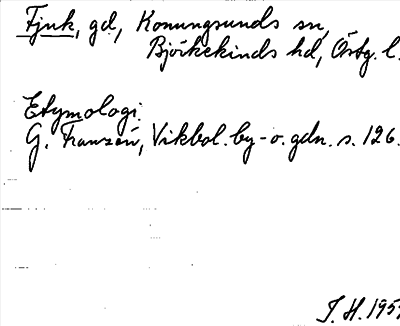 Fjuk, gd, Konungsunds sn,
Björkekinds hd, Östg. l.
Etymologi:
G. Franzén, Vikbol. by- o. gdn. s. 126.
I. H. 195